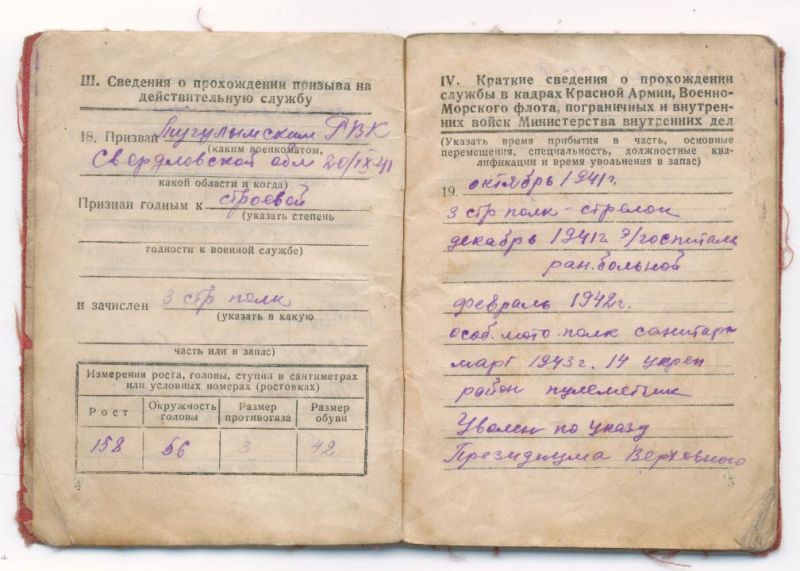 III. Сведения о прохождении призыва на
действительную службу
18. Призван Тугулымским РВК
(каким военкоматом,
Свердловской обл 20/IX-41
какой области и когда)
Признан годным к строевой
(указать степень
годности к военной службе)
и зачислен 3 стр полк
(указать в какую
часть или в запас)
Измерения роста, головы, ступни в сантиметрах
или условных номерах (ростовках)
Рост Окружность головы Размер противогаза Размер обуви
158 56 3 42
4
IV. Краткие сведения о прохождении
службы в кадрах Красной Армии, Военно-
Морского флота, пограничных и внутрен-
них войск Министерства внутренних дел
(Указать время прибытия в часть, основные
перемещения, специальность, должностные ква-
лификации и время увольнения в запас)
19. октябрь 1941г.
3 стр полк - стрелок
декабрь 1941г э/госпиталь
ран. больной
февраль 1942г.
особ. мото. полк санитар
март 1943г. 14 укреп
район пулеметчик
Уволен по указу
Президиума Верховного
5